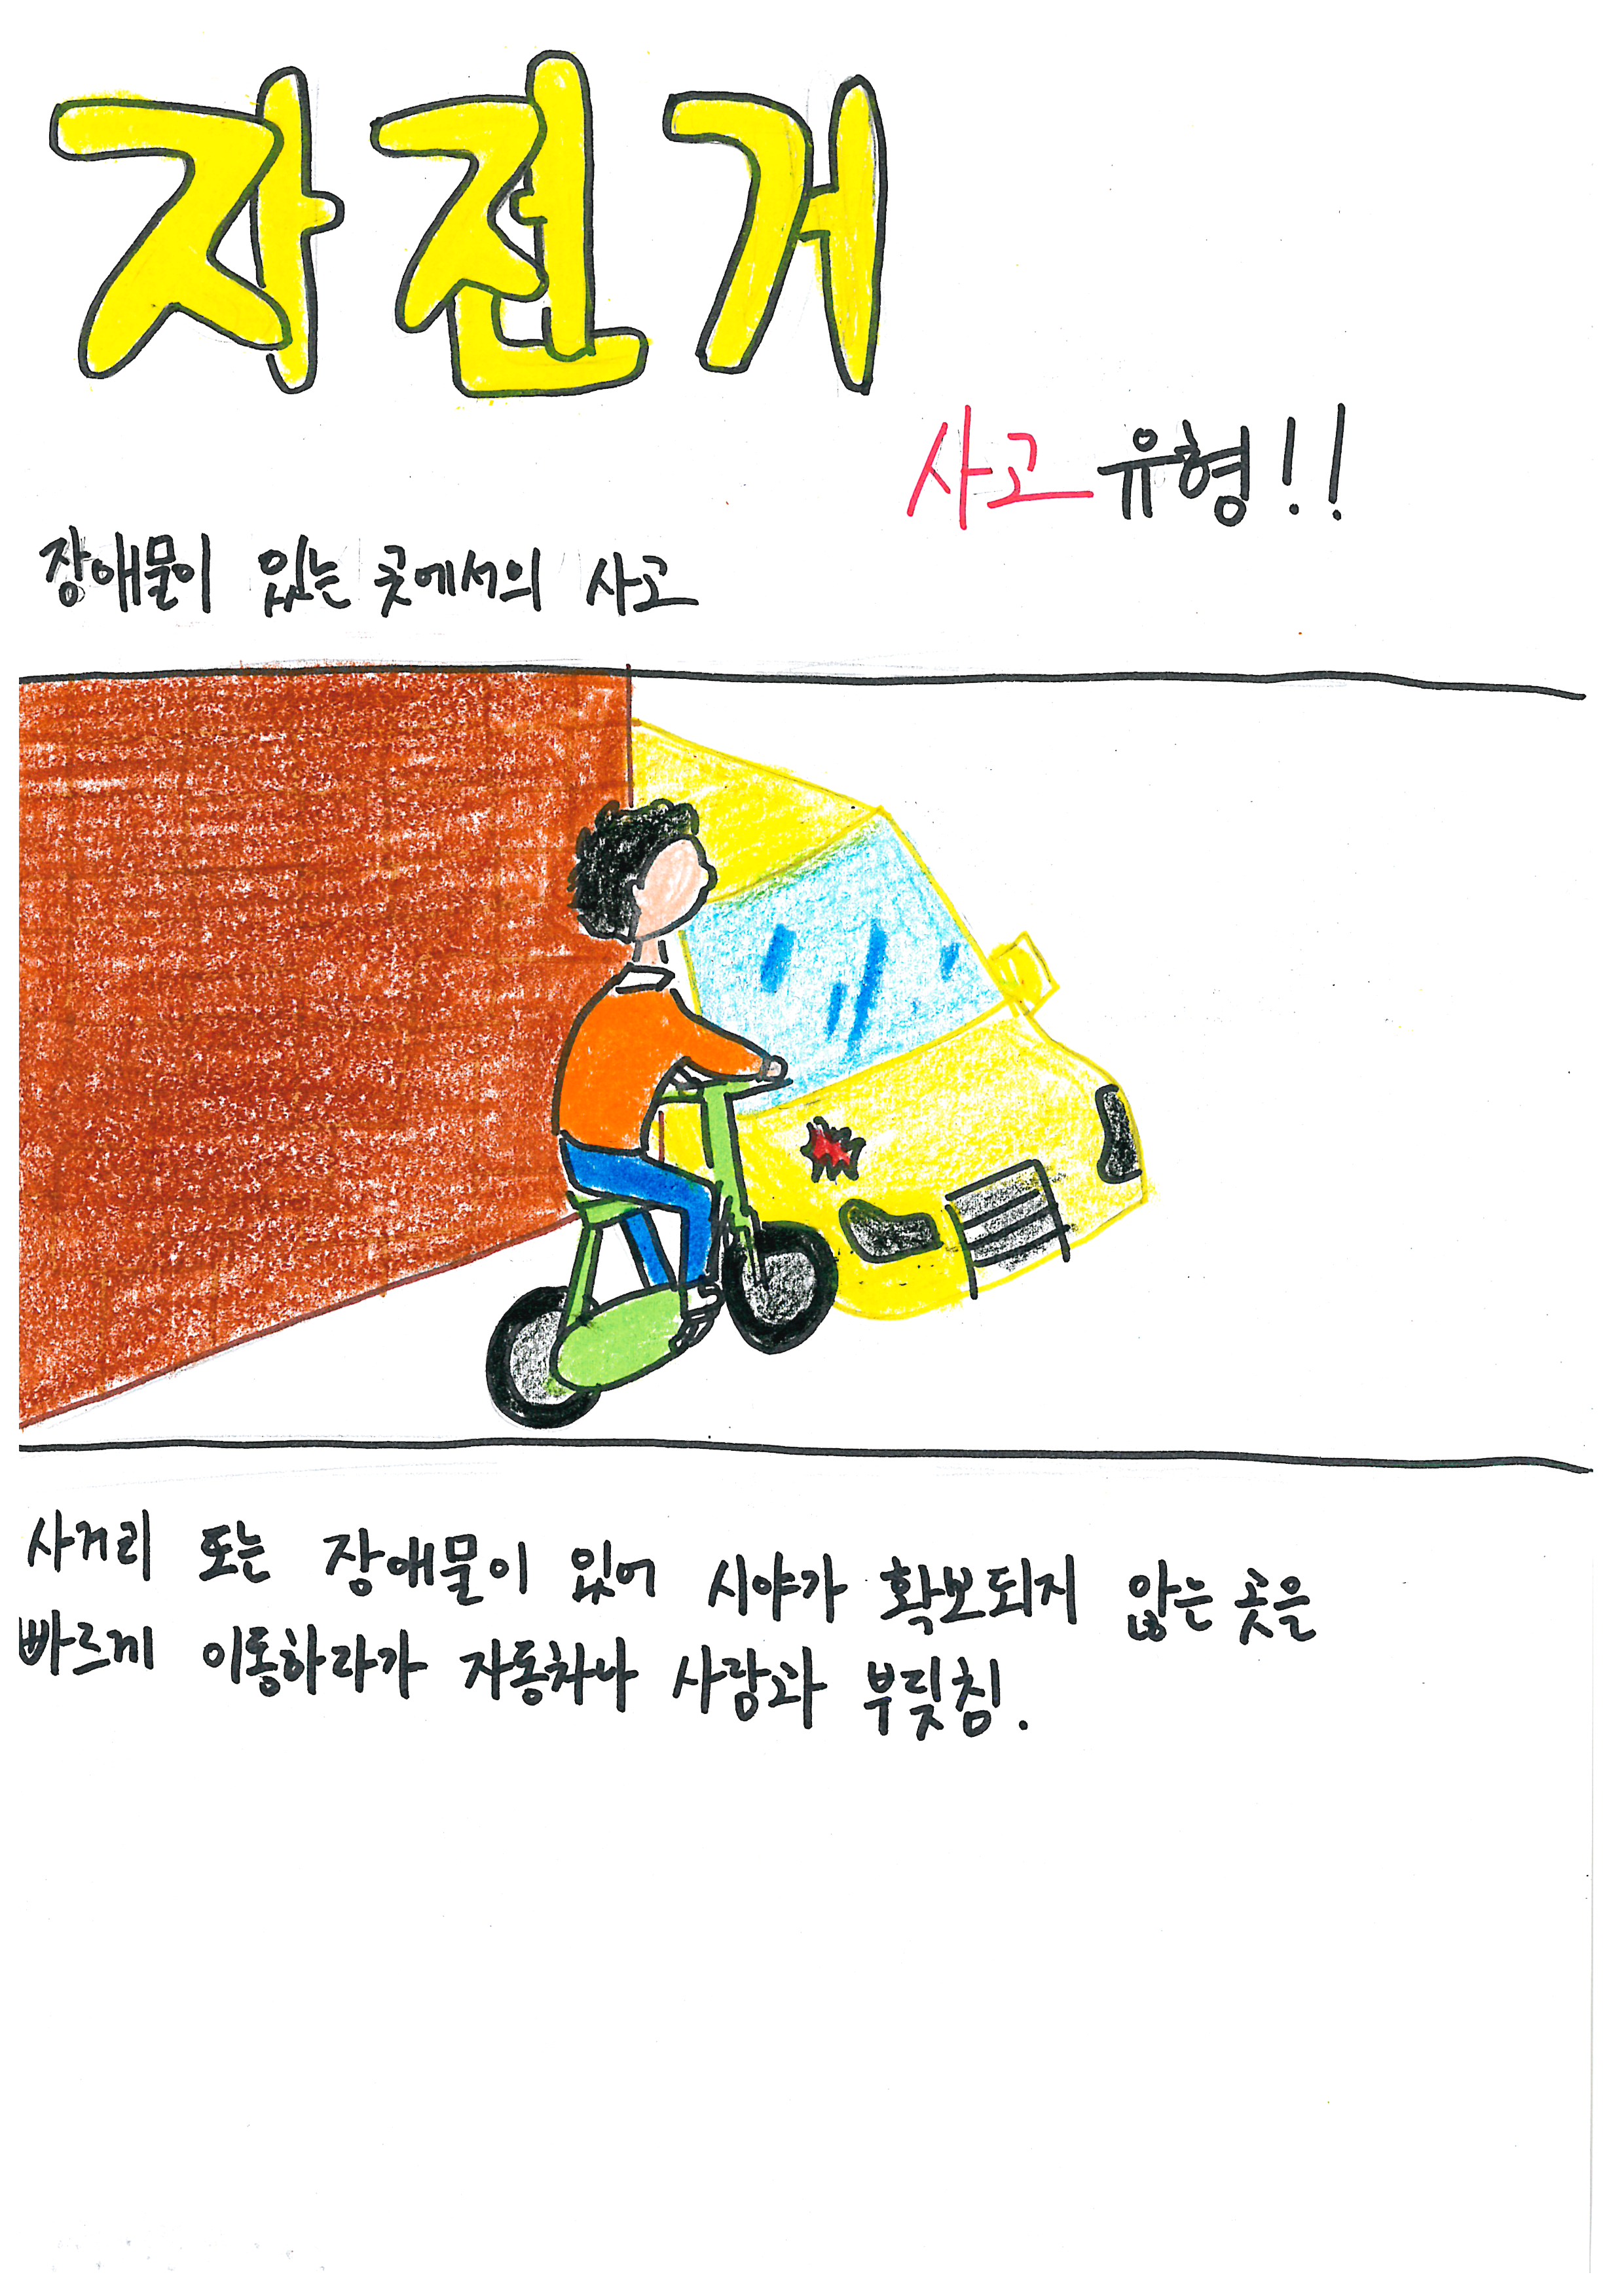 자전거
사고 유형!!
장애물이 있는 곳에서의 사고
사거리 또는 장애물이 있어 시야가 확보되지 않는 곳을
빠르게 이동하라가 자동차나 사람과 부딪침.